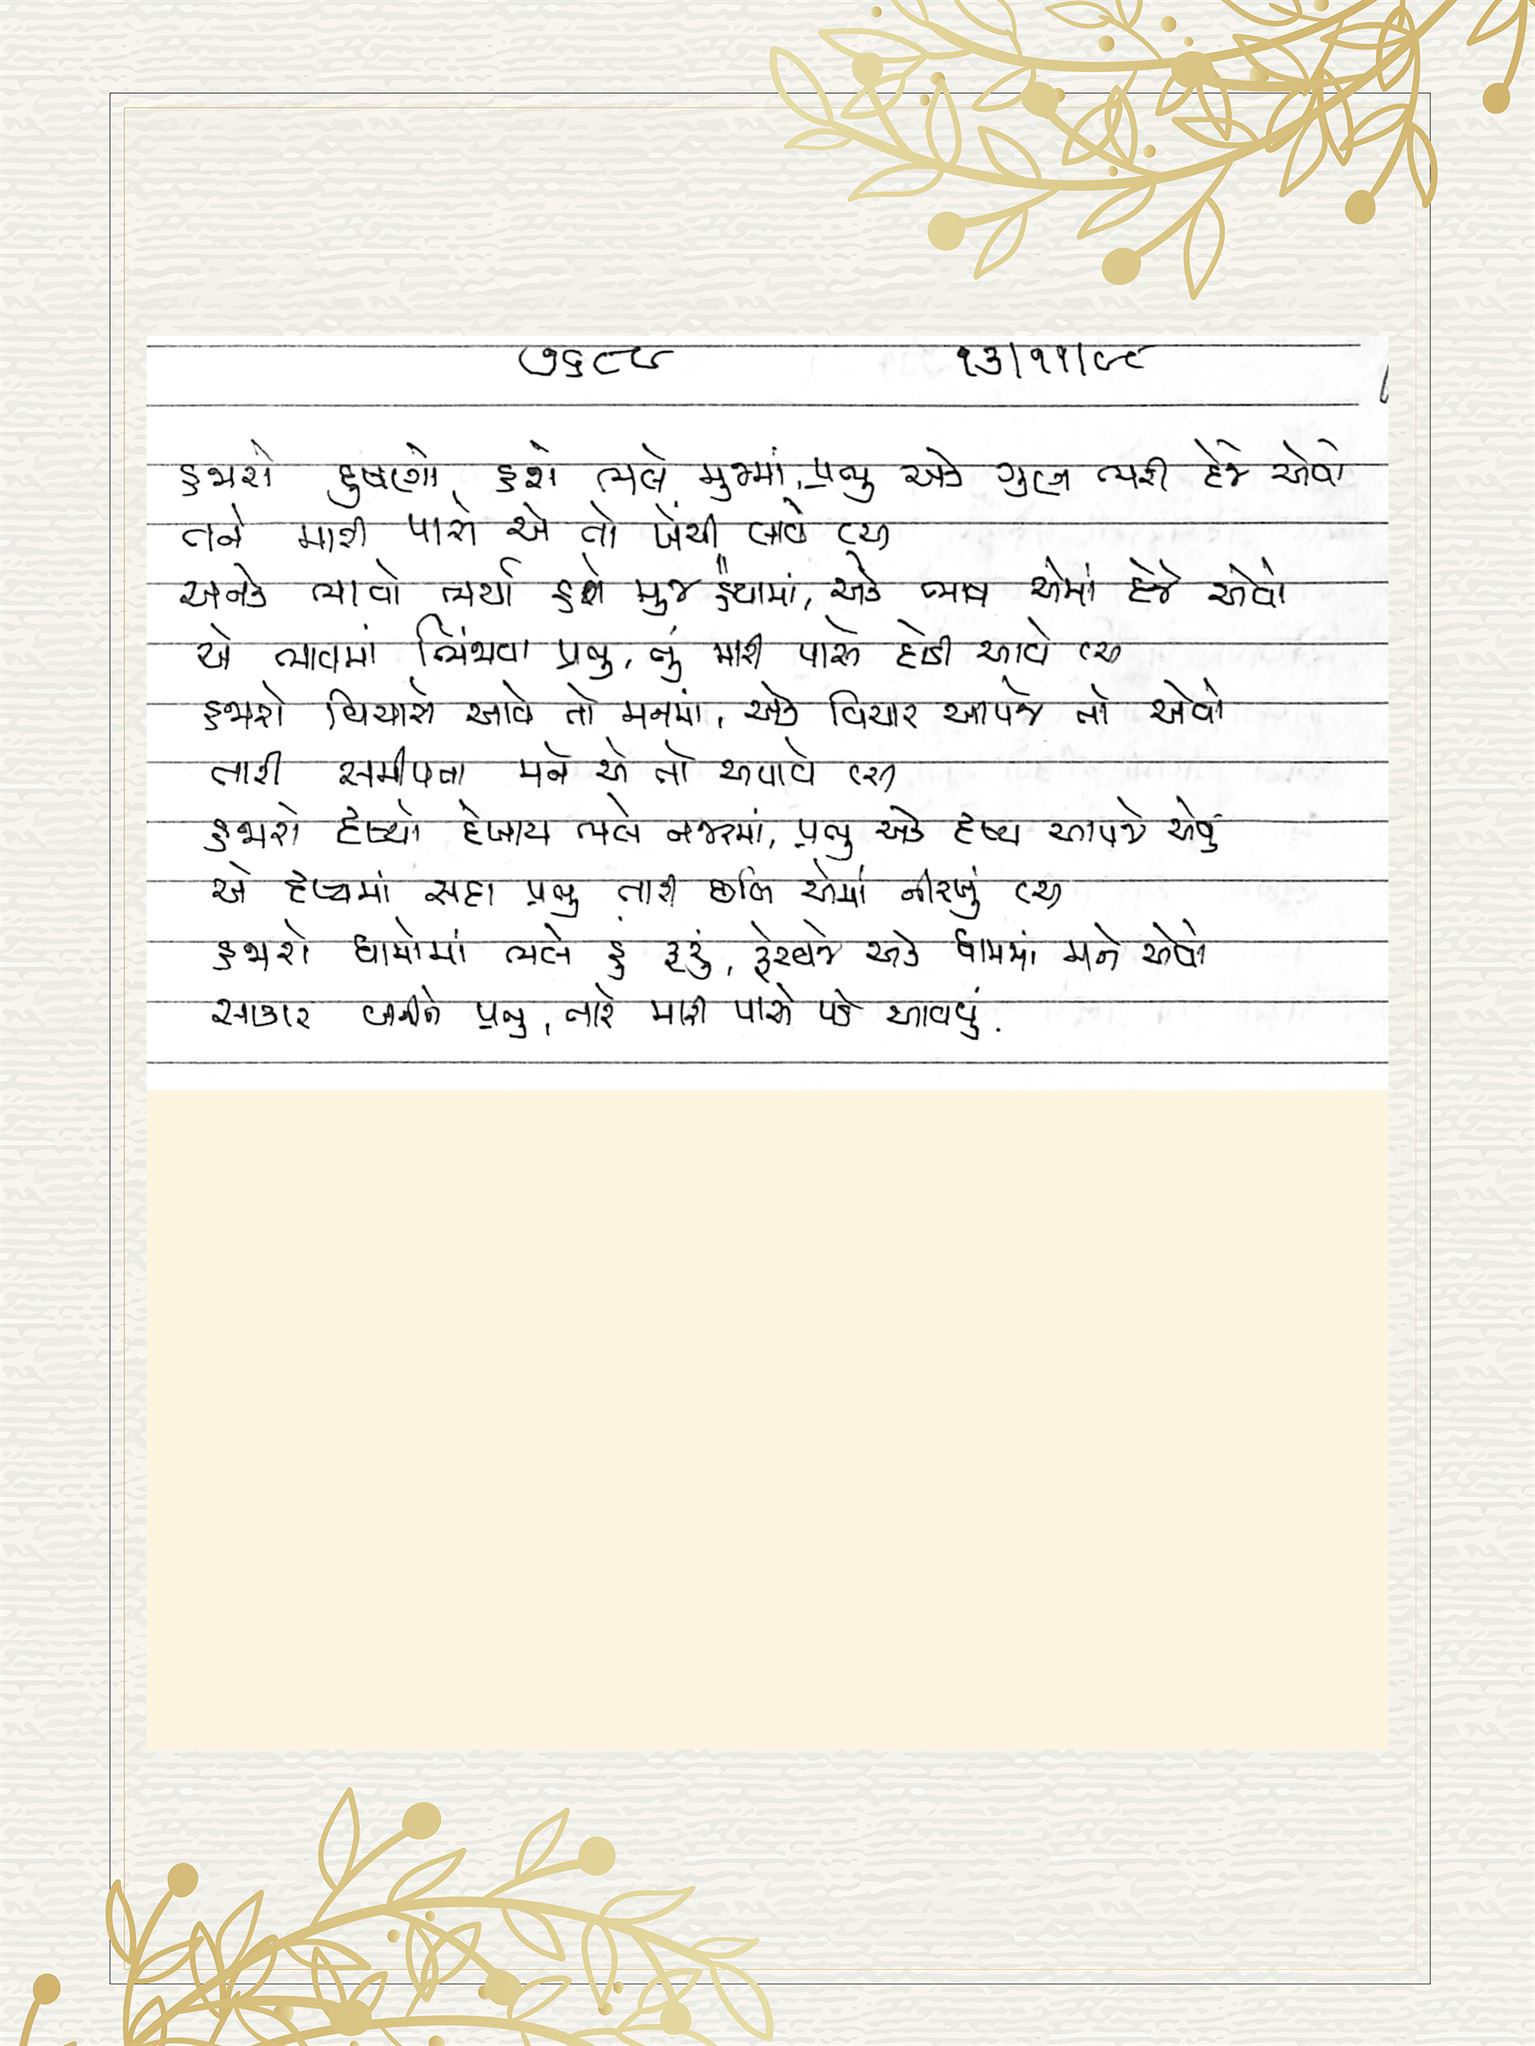 ૭૬૯૮ ૧૩/૧૧/૯૮
હજારો દુષણો હશે ભલે મુજમાં, પ્રભુ એક ગુણ ભરી દેજે એવો
તને મારી પાસે એ તો ખેંચી લાવે
અનેક ભાવો ભર્યા હશે મુજ હૈયામાં, એક ભાવ એમાં દેજે એવો
એ ભાવમાં ભિંજાવા પ્રભુ, તું મારી પાસે દોડી આવે
હજારો વિચારો આવે તો મનમાં, એક વિચાર આપજે તો એવો
તારી સમીપતા મને એ તો અપાવે
હજારો દૃષ્યો દેખાય ભલે નજરમાં, પ્રભુ એક દૃષ્ય આપજે એવું
એ દૃષ્યમાં સદા પ્રભુ તારી છબિ એમાં નીરખું
હજારો ધામોમાં ભલે હું ફરું, ફેરવજે એક ધામમાં મને એવો
સાકાર બનીને પ્રભુ, તારે મારી પાસે પડે આવવું.